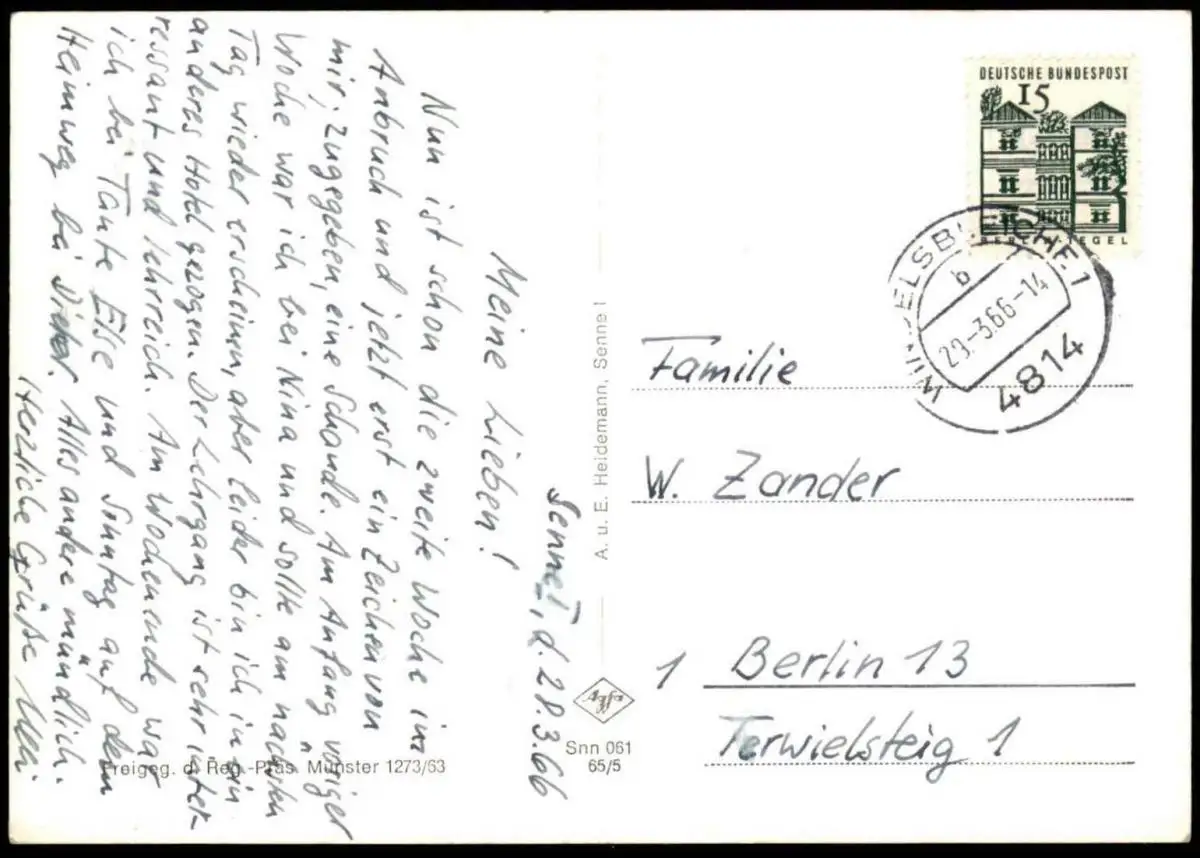 Senne I, d. 28.3.66
Meine Lieben!
Nun ist schon die zweite Woche im
Anbruch und jetzt erst ein Zeichen von
mir; zugegeben, eine Schande. Am Anfang voriger
Woche war ich bei Nina und sollte am nächsten
Tag wieder erscheinen, aber leider bin ich in ein
anderes Hotel gezogen. Der Lehrgang ist sehr inter-
ressant und lehrreich. Am Wochenende war
ich bei Tante Else und Sonntag auf dem
Heimweg bei Dieter. Alles andere mündlich.
Herzliche Grüße
Freigeg. d. Reg.-Präs. Münster 1273/63
A. u. E. Heidemann, Senne I
Snn 061
65/5
DEUTSCHE BUNDESPOST
15
BERLIN-TEGEL
WINDELSBLEICHE 1
b
29.-3.66-14
4814
Familie
W. Zander
1 Berlin 13
Terwielsteig 1